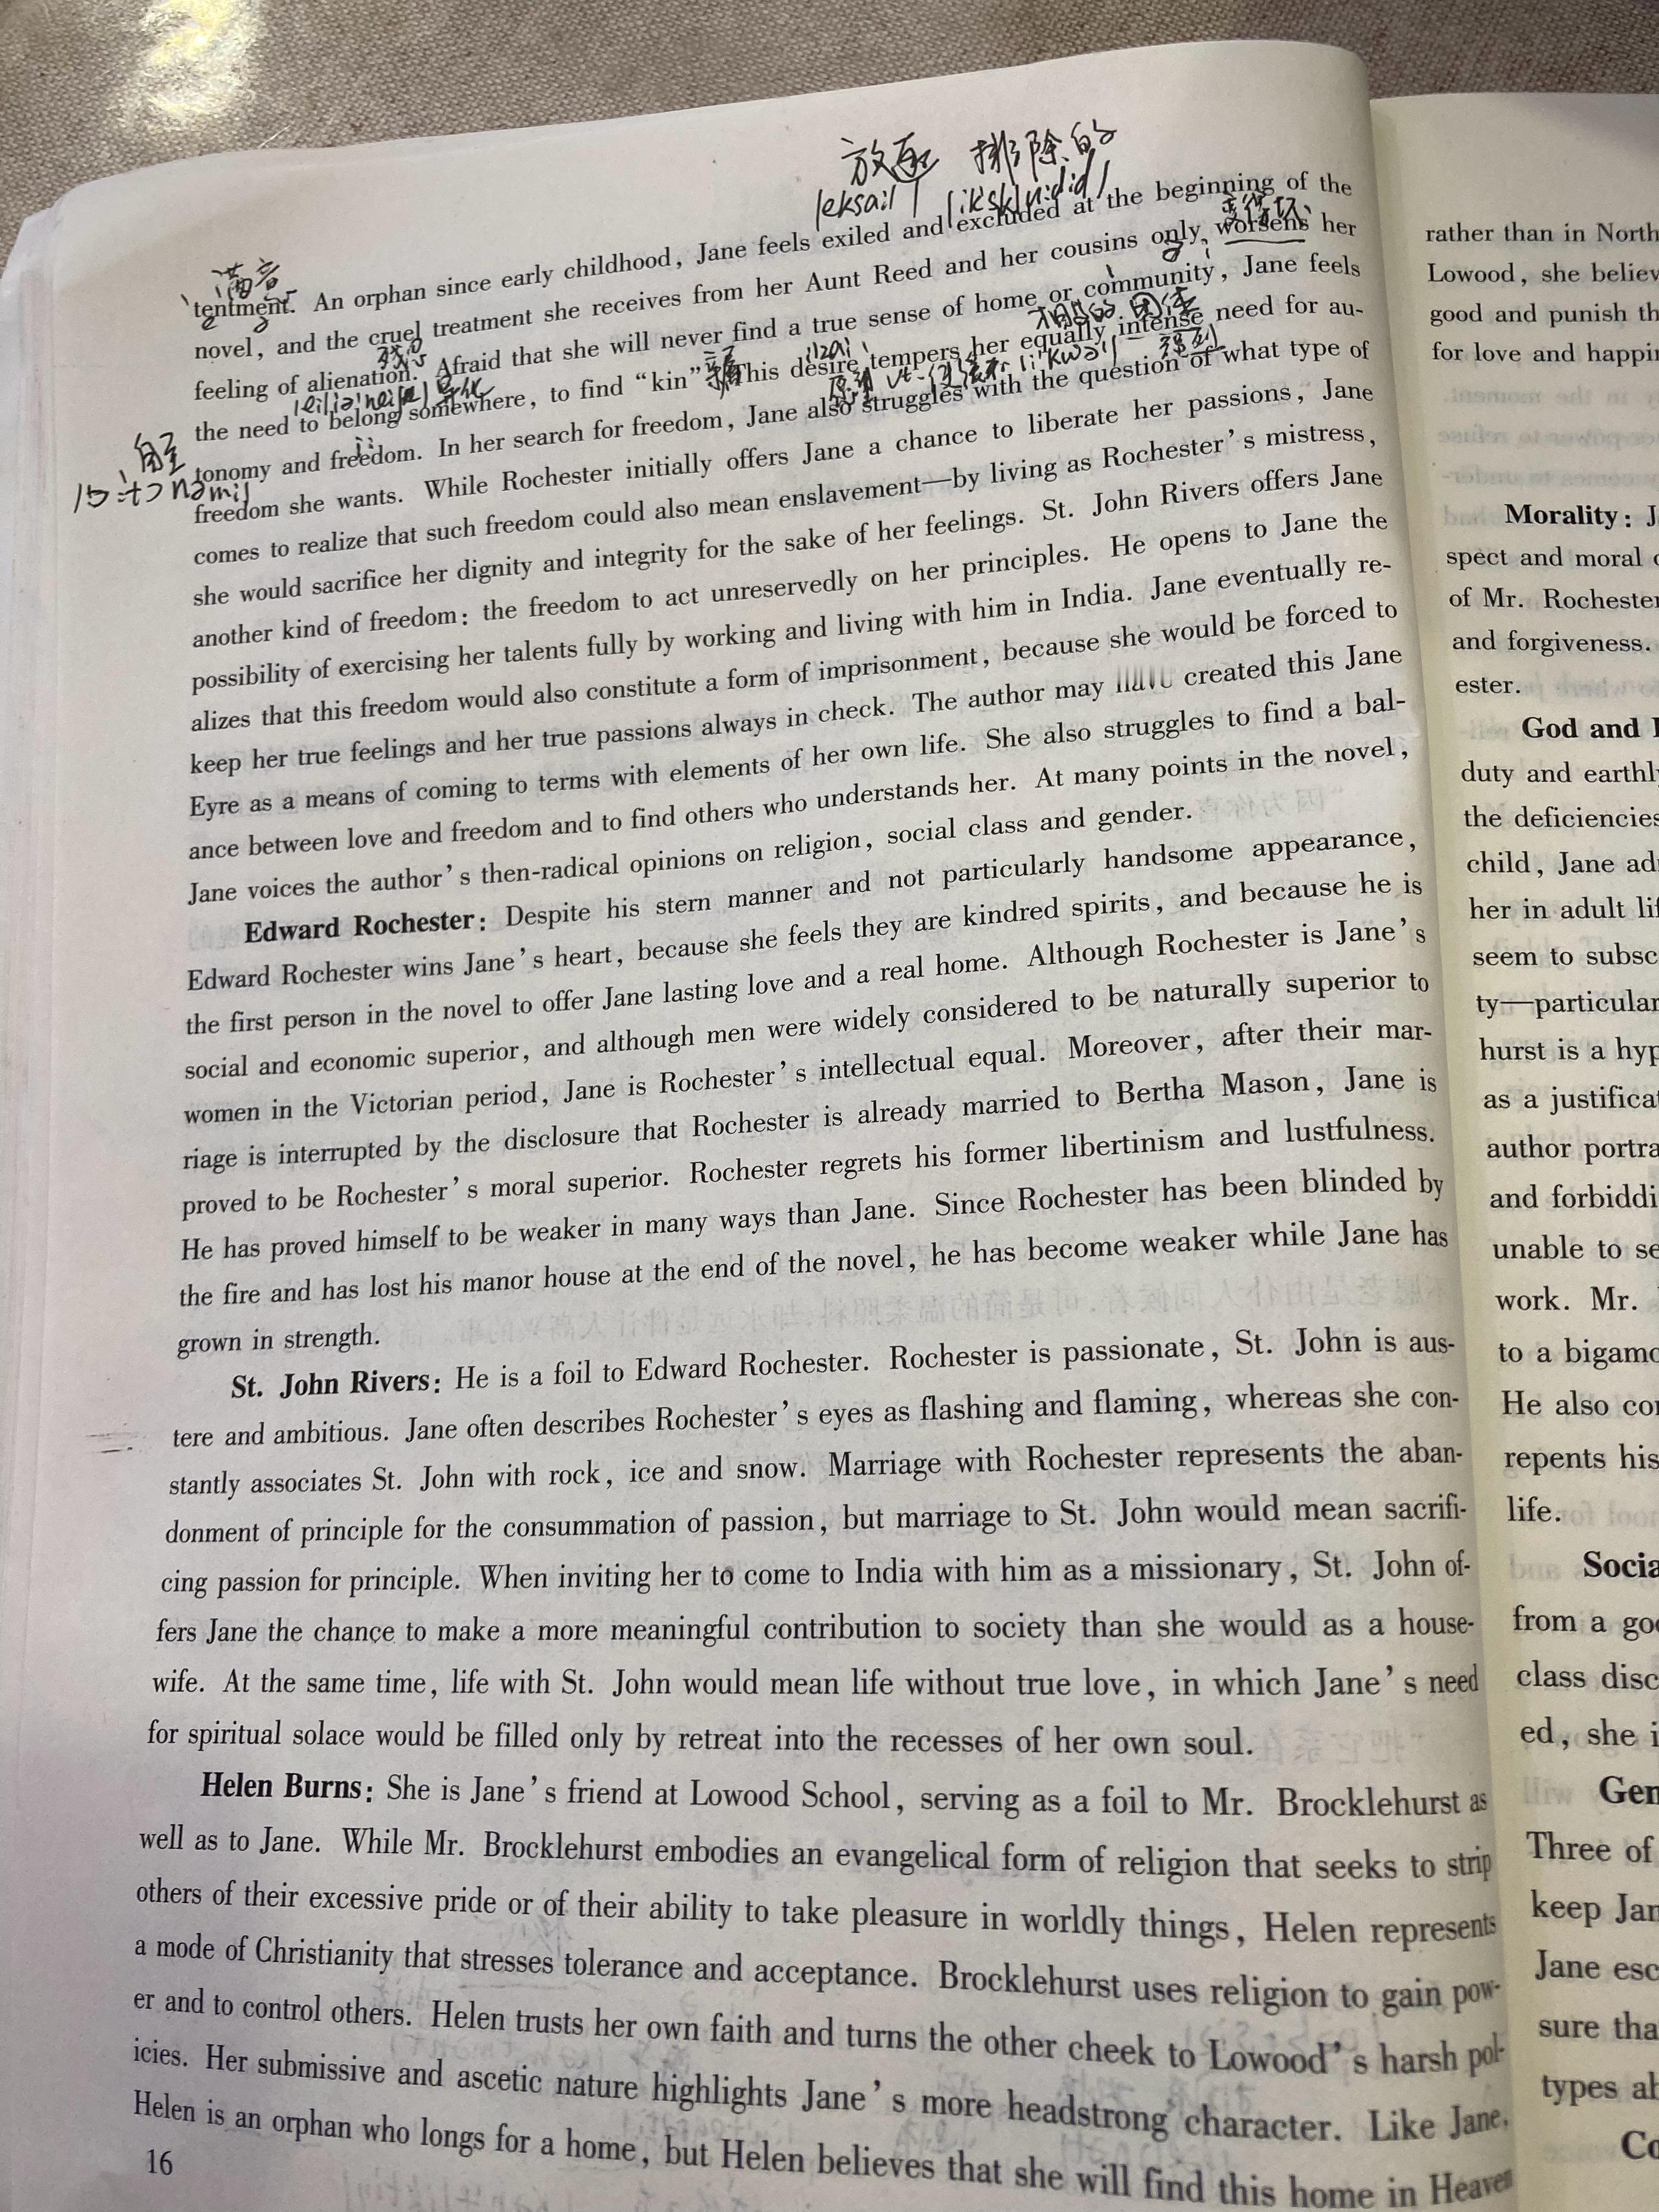 放逐 排除的
tentment. An orphan since early childhood, Jane feels exiled and excluded at the beginning of the
novel, and the cruel treatment she receives from her Aunt Reed and her cousins only worsens her
feeling of alienation. Afraid that she will never find a true sense of home or community, Jane feels
the need to belong somewhere, to find “kin”. This desire tempers her equally intense need for au-
自主
tonomy and freedom. In her search for freedom, Jane also struggles with the question of what type of
freedom she wants. While Rochester initially offers Jane a chance to liberate her passions, Jane
comes to realize that such freedom could also mean enslavement—by living as Rochester’s mistress,
she would sacrifice her dignity and integrity for the sake of her feelings. St. John Rivers offers Jane
another kind of freedom: the freedom to act unreservedly on her principles. He opens to Jane the
possibility of exercising her talents fully by working and living with him in India. Jane eventually re-
alizes that this freedom would also constitute a form of imprisonment, because she would be forced to
keep her true feelings and her true passions always in check. The author may have created this Jane
Eyre as a means of coming to terms with elements of her own life. She also struggles to find a bal-
ance between love and freedom and to find others who understands her. At many points in the novel,
Jane voices the author’s then-radical opinions on religion, social class and gender.
Edward Rochester: Despite his stern manner and not particularly handsome appearance,
Edward Rochester wins Jane’s heart, because she feels they are kindred spirits, and because he is
the first person in the novel to offer Jane lasting love and a real home. Although Rochester is Jane’s
social and economic superior, and although men were widely considered to be naturally superior to
women in the Victorian period, Jane is Rochester’s intellectual equal. Moreover, after their mar-
riage is interrupted by the disclosure that Rochester is already married to Bertha Mason, Jane is
proved to be Rochester’s moral superior. Rochester regrets his former libertinism and lustfulness.
He has proved himself to be weaker in many ways than Jane. Since Rochester has been blinded by
the fire and has lost his manor house at the end of the novel, he has become weaker while Jane has
grown in strength.
St. John Rivers: He is a foil to Edward Rochester. Rochester is passionate, St. John is aus-
tere and ambitious. Jane often describes Rochester’s eyes as flashing and flaming, whereas she con-
stantly associates St. John with rock, ice and snow. Marriage with Rochester represents the aban-
donment of principle for the consummation of passion, but marriage to St. John would mean sacrifi-
cing passion for principle. When inviting her to come to India with him as a missionary, St. John of-
fers Jane the chance to make a more meaningful contribution to society than she would as a house-
wife. At the same time, life with St. John would mean life without true love, in which Jane’s need
for spiritual solace would be filled only by retreat into the recesses of her own soul.
Helen Burns: She is Jane’s friend at Lowood School, serving as a foil to Mr. Brocklehurst as
well as to Jane. While Mr. Brocklehurst embodies an evangelical form of religion that seeks to strip
others of their excessive pride or of their ability to take pleasure in worldly things, Helen represents
a mode of Christianity that stresses tolerance and acceptance. Brocklehurst uses religion to gain pow-
er and to control others. Helen trusts her own faith and turns the other cheek to Lowood’s harsh pol-
icies. Her submissive and ascetic nature highlights Jane’s more headstrong character. Like Jane,
Helen is an orphan who longs for a home, but Helen believes that she will find this home in Heaven
16
rather than in North
Lowood, she believ
good and punish th
for love and happi
Morality: J
spect and moral
of Mr. Rochester
and forgiveness.
ester.
God and
duty and earthl
the deficiencies
child, Jane ad
her in adult li
seem to subsc
ty—particular
hurst is a hyp
as a justifica
author portra
and forbiddi
unable to se
work. Mr.
to a bigamo
He also co
repents his
life.
Socia
from a go
class disc
ed, she i
Gen
Three of
keep Jan
Jane esc
sure tha
types a
Co